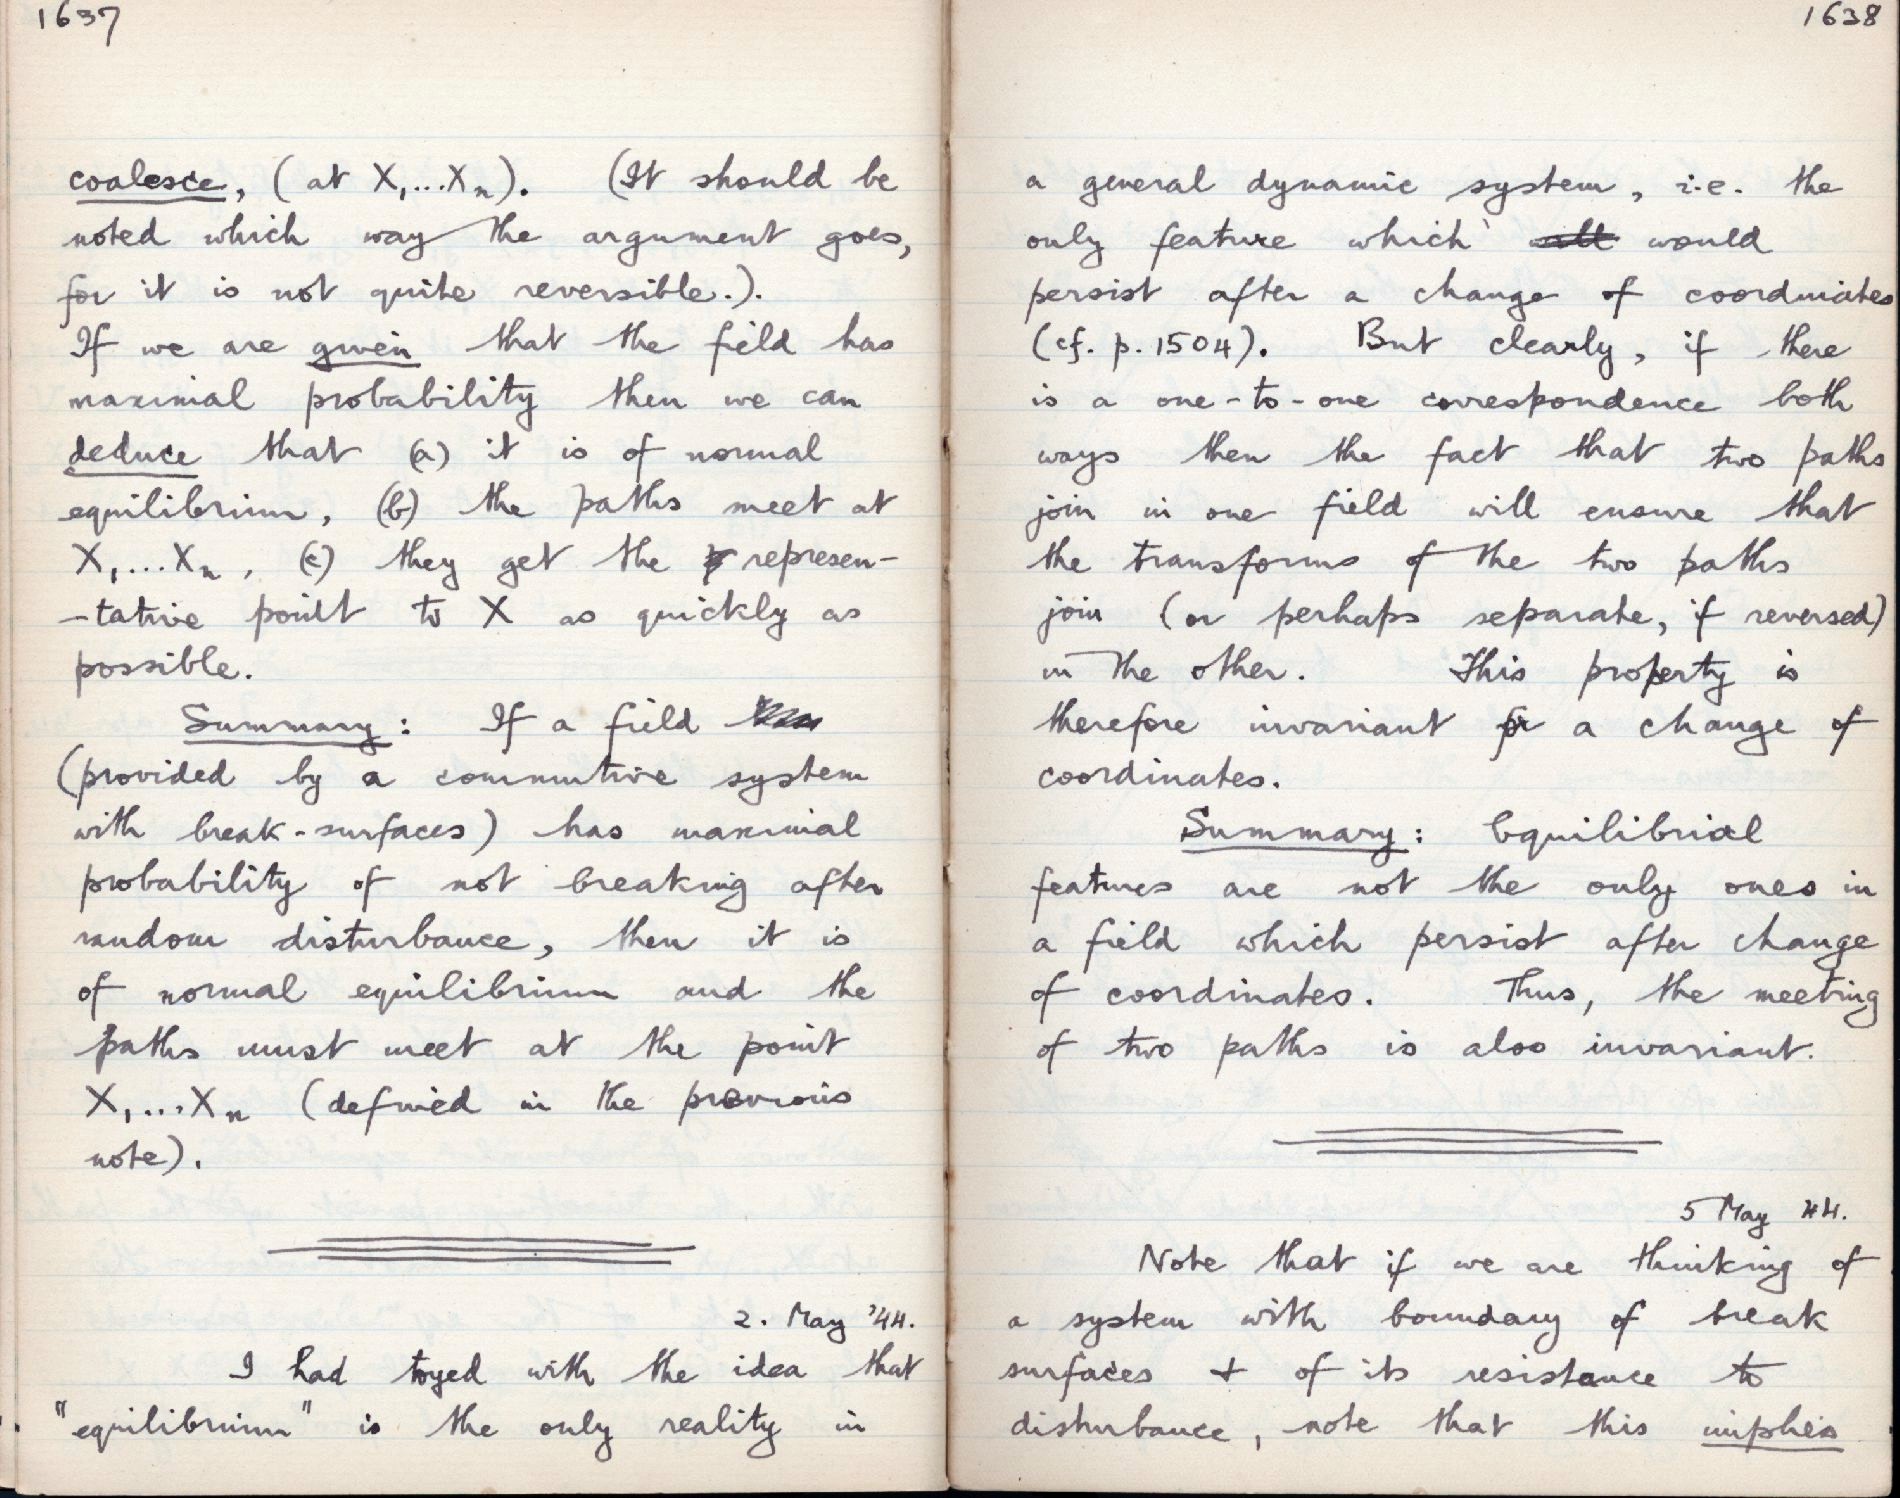 1637
coalesce, (at X₁...Xₙ). (It should be
noted which way the argument goes,
for it is not quite reversible.).
If we are given that the field has
maximal probability then we can
deduce that (a) it is of normal
equilibrium, (b) the paths meet at
X₁...Xₙ, (c) they get the represen-
-tative point to X as quickly as
possible.
Summary: If a field
(provided by a commutive system
with break-surfaces) has maximal
probability of not breaking after
random disturbance, then it is
of normal equilibrium and the
paths must meet at the point
X₁...Xₙ (defined in the previous
note).
2. May '44.
I had toyed with the idea that
"equilibrium" is the only reality in
1638
a general dynamic system, i.e. the
only feature which would
persist after a change of coordinates
(cf. p. 1504). But clearly, if there
is a one-to-one correspondence both
ways then the fact that two paths
join in one field will ensure that
the transforms of the two paths
join (or perhaps separate, if reversed)
in the other. This property is
therefore invariant for a change of
coordinates.
Summary: Equilibrial
features are not the only ones in
a field which persist after change
of coordinates. Thus, the meeting
of two paths is also invariant.
5 May 44.
Note that if we are thinking of
a system with boundary of break
surfaces + of its resistance to
disturbance, note that this implies